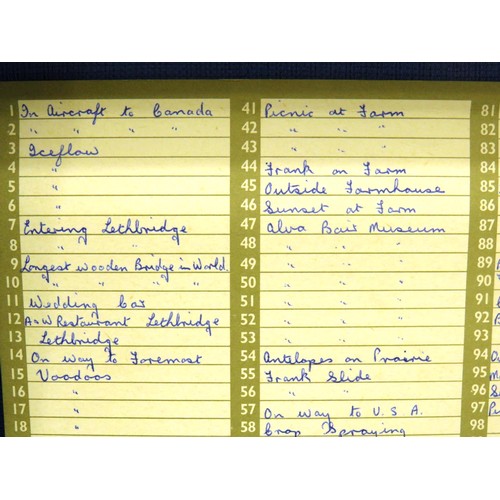 1 In Aircraft to Canada
2 " " " "
3 Iceflow
4 "
5 "
6 "
7 Entering Lethbridge
8 " "
9 Longest Wooden Bridge in World.
10 " " " " "
11 Wedding Car
12 A&W Restaurant Lethbridge
13 Lethbridge
14 On way to Foremost
15 Voodoos
16 "
17 "
18 "
41 Picnic at Farm
42 " " "
43 " " "
44 Frank on Farm
45 Outside Farmhouse
46 Sunset at Farm
47 Alva Bair Museum
48 " " "
49 " " "
50 " " "
51 " " "
52 " " "
53 " " "
54 Antilopes on Prairie
55 Frank Slide
56 " "
57 On way to U.S.A.
58 Crop Spraying
81
82
83
84
85
86
87
88
89
90
91
92
93
94
95
96
97
98